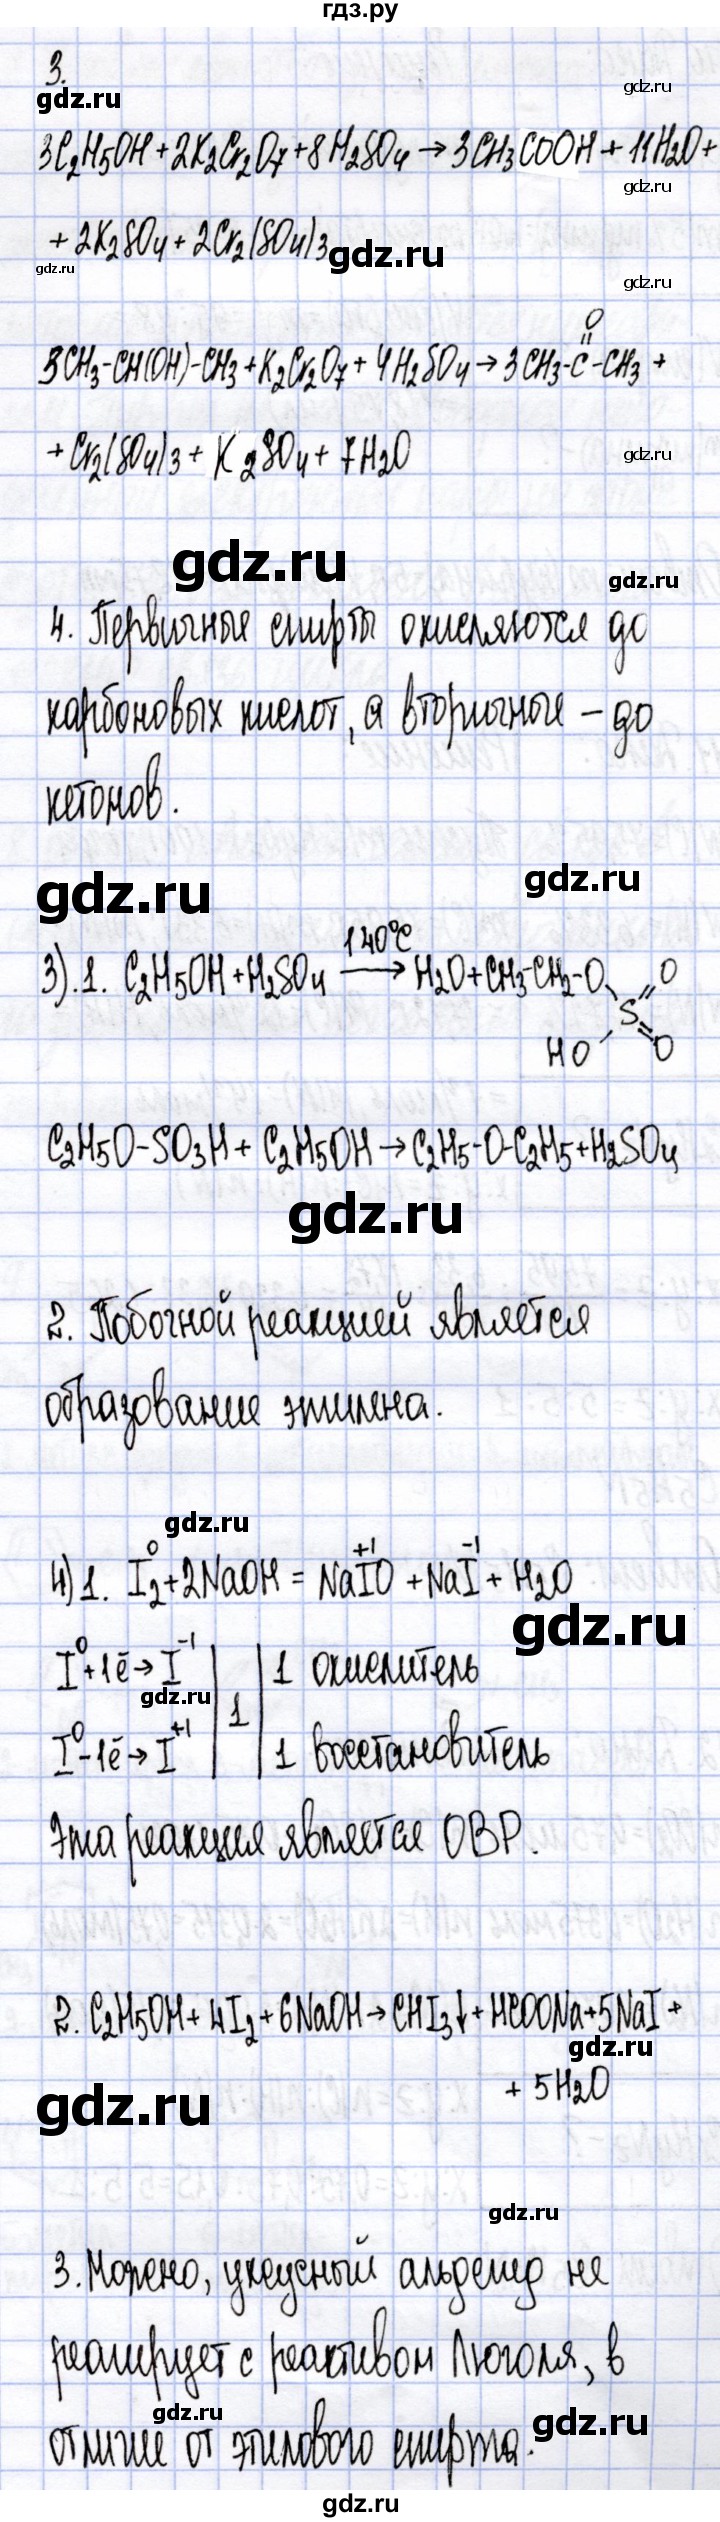 гдз.ру
3.
gdz.ru
gdz.ru
3C₂H₅OH+2K₂Cr₂O₇+8H₂SO₄→3CH₃COOH+11H₂O+
gdz.ru
+2K₂SO₄+2Cr₂(SO₄)₃
gdz.ru
gdz.ru
gdz.ru
O
3CH₃-CH(OH)-CH₃+K₂Cr₂O₇+4H₂SO₄→3CH₃-C-CH₃+
+Cr₂(SO₄)₃+K₂SO₄+7H₂O
gdz.ru
gdz.ru
gdz.ru
4. Первичные спирты окисляются до
карбоновых кислот, а вторичные – до
кетонов.
gdz.ru
gdz.ru
3).1. C₂H₅OH+H₂SO₄ 140°C→ H₂O+CH₃-CH₂-O O
S
HO O
C₂H₅O-SO₃H+C₂H₅OH→C₂H₅-O-C₂H₅+H₂SO₄
gdz.ru
2. Побочной реакцией является
образование этилена.
gdz.ru
4)1. I₂⁰+2NaOH=NaI⁺¹O+NaI⁻¹+H₂O
gdz.ru
I⁰+1ē→I⁻¹ | | 1 окислитель
gdz.ru
1
I⁰-1ē→I⁺¹ | | 1 восстановитель
Эта реакция является ОВР.
2. C₂H₅OH+4I₂+6NaOH→CHI₃↓+HCOONa+5NaI+
gdz.ru
+5H₂O
gdz.ru
gdz.ru
3. Можно, уксусный альдегид не
реагирует с реактивом Люголя, в
gdz.ru
gdz.ru
отличие от этилового спирта.
gdz.ru